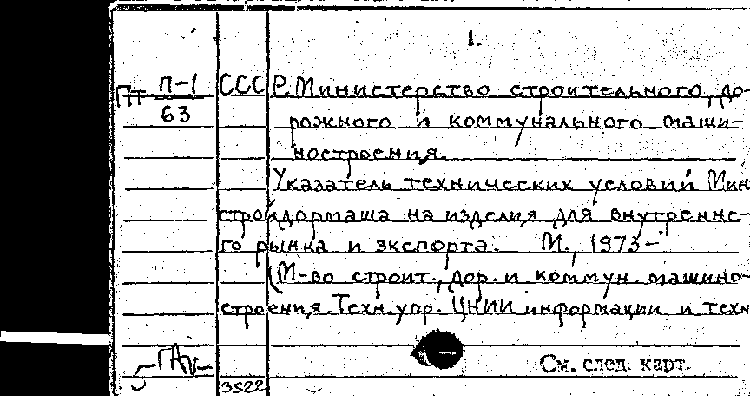 1.
Пт П-1 СССР. Министерство строительного, до-
63 рожного и коммунального маши-
ностроения.
Указатель технических условий Мин
стройдормаша на изделия для внутренне-
го рынка и экспорта. М., 1973-
(М-во строит., дор. и коммун. машино-
строения. Техн. упр. ЦНИИ информации и техн
См. след. карт.
3522